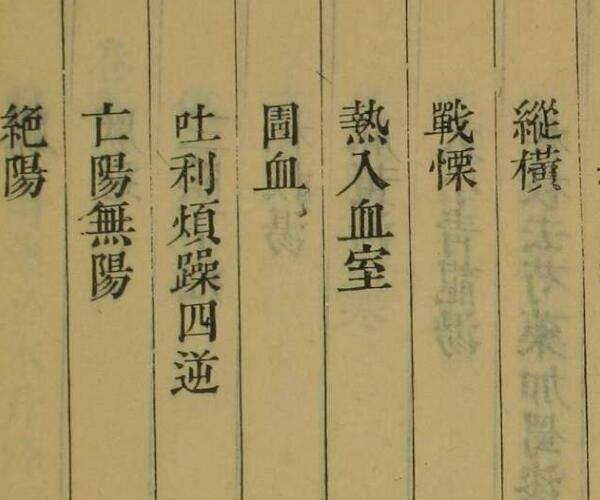 縱橫
戰慄
熱入血室
圊血
吐利煩躁四逆
亡陽無陽
絕陽